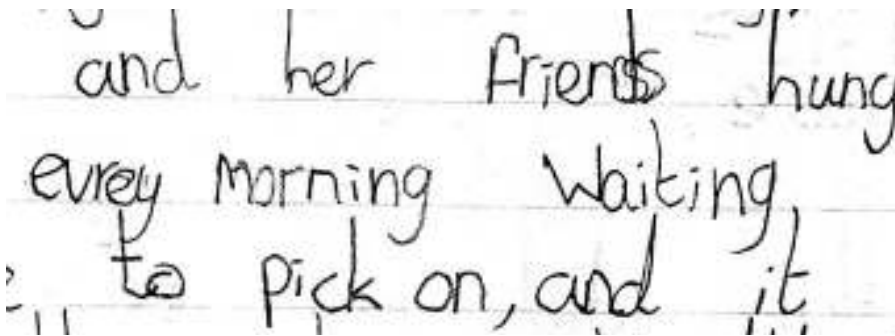 and her friends hung
evrey morning Waiting
to pick on, and it